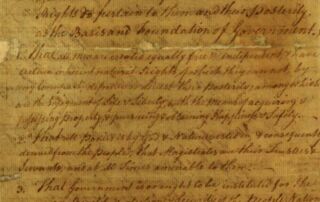 Rights do pertain to them and their Posterity,
as the Basis and Foundation of Government.
1. That all men are created equally free & independent & have
certain inherent natural Rights, of which they cannot by
any Compact, deprive or divest their Posterity; among which
are the Enjoyment of Life & Liberty, with the means of acquiring &
possessing Property, & pursueing & obtaining Happiness & Safety.
2. That all Power is by God & Nature vested in & consequently
derived from the People; that Magistrates are their Trustees &
Servants, and at all Times amenable to them.
3. That Government is or ought to be instituted for the